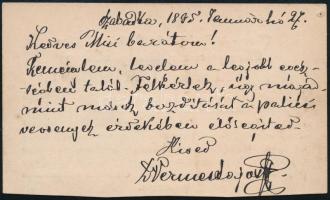 Szabadka, 1895. Januárhó 27.
Kedves Misi barátom!
Remélem, levelem a legjobb egész-
ségben talál. Felkérlek, úgy magad
mint mások buzdítását a palicsi
versenyek érdekében elősegíted.
Hived
Vermes Lajos